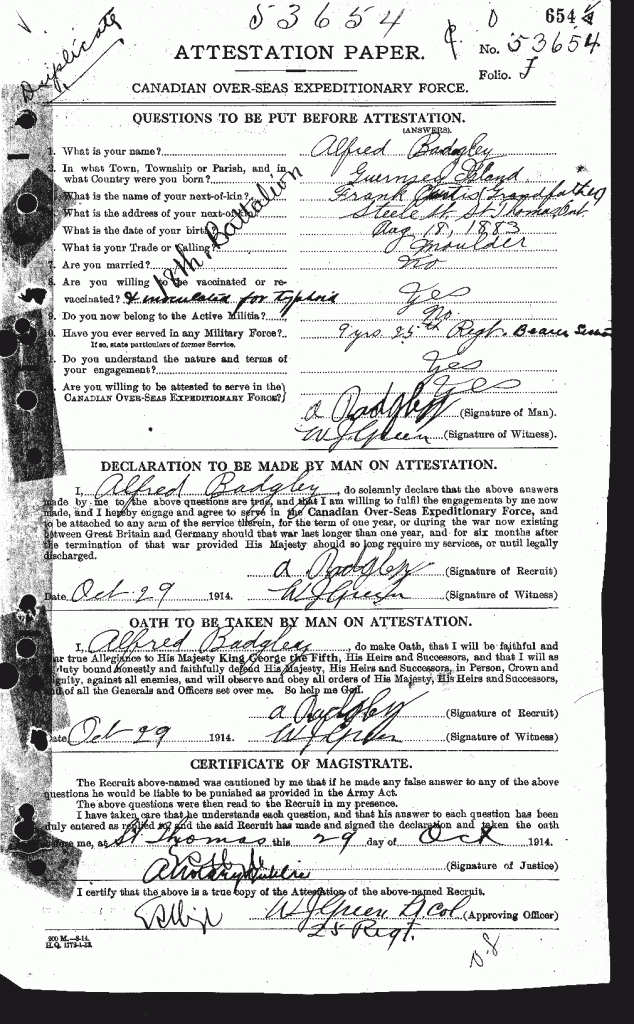 53654
654
Duplicate
ATTESTATION PAPER.
No. 53654
Folio. J
CANADIAN OVER-SEAS EXPEDITIONARY FORCE.
QUESTIONS TO BE PUT BEFORE ATTESTATION.
(ANSWERS).
1. What is your name? Alfred Badgley
2. In what Town, Township or Parish, and in
what Country were you born? Guernsey Island
What is the name of your next-of-kin? Frank Curtis Grandfather
What is the address of your next-of-kin? Steele St St Thomas Ont.
What is the date of your birth? Aug 18, 1883
What is your Trade or Calling? Moulder
7. Are you married? No
18th Battalion
8. Are you willing to be vaccinated or re-
vaccinated? & inoculated for typhoid Yes
9. Do you now belong to the Active Militia? No
10. Have you ever served in any Military Force? 9 yrs 25th Regt. Bearer
If so, state particulars of former Service.
Do you understand the nature and terms of
your engagement? Yes
Are you willing to be attested to serve in the
CANADIAN OVER-SEAS EXPEDITIONARY FORCE? Yes
A Badgley (Signature of Man).
W J Green (Signature of Witness).
DECLARATION TO BE MADE BY MAN ON ATTESTATION.
I, Alfred Badgley, do solemnly declare that the above answers
made by me to the above questions are true, and that I am willing to fulfil the engagements by me now
made, and I hereby engage and agree to serve in the Canadian Over-Seas Expeditionary Force, and
to be attached to any arm of the service therein, for the term of one year, or during the war now existing
between Great Britain and Germany should that war last longer than one year, and for six months after
the termination of that war provided His Majesty should so long require my services, or until legally
discharged.
A Badgley (Signature of Recruit)
Date Oct 29 1914. W J Green (Signature of Witness)
OATH TO BE TAKEN BY MAN ON ATTESTATION.
I, Alfred Badgley, do make Oath, that I will be faithful and
bear true Allegiance to His Majesty King George the Fifth, His Heirs and Successors, and that I will as
in duty bound honestly and faithfully defend His Majesty, His Heirs and Successors, in Person, Crown and
Dignity, against all enemies, and will observe and obey all orders of His Majesty, His Heirs and Successors,
and of all the Generals and Officers set over me. So help me God.
A Badgley (Signature of Recruit)
Date Oct 29 1914. W J Green (Signature of Witness)
CERTIFICATE OF MAGISTRATE.
The Recruit above-named was cautioned by me that if he made any false answer to any of the above
questions he would be liable to be punished as provided in the Army Act.
The above questions were then read to the Recruit in my presence.
I have taken care that he understands each question, and that his answer to each question has been
duly entered as replied to, and the said Recruit has made and signed the declaration and taken the oath
before me, at St Thomas this 29 day of Oct 1914.
A Notary Public (Signature of Justice)
I certify that the above is a true copy of the Attestation of the above-named Recruit.
W J Green Lt Col (Approving Officer)
25 Regt.
200 M.—8-14.
H.Q. 1772-1-13.